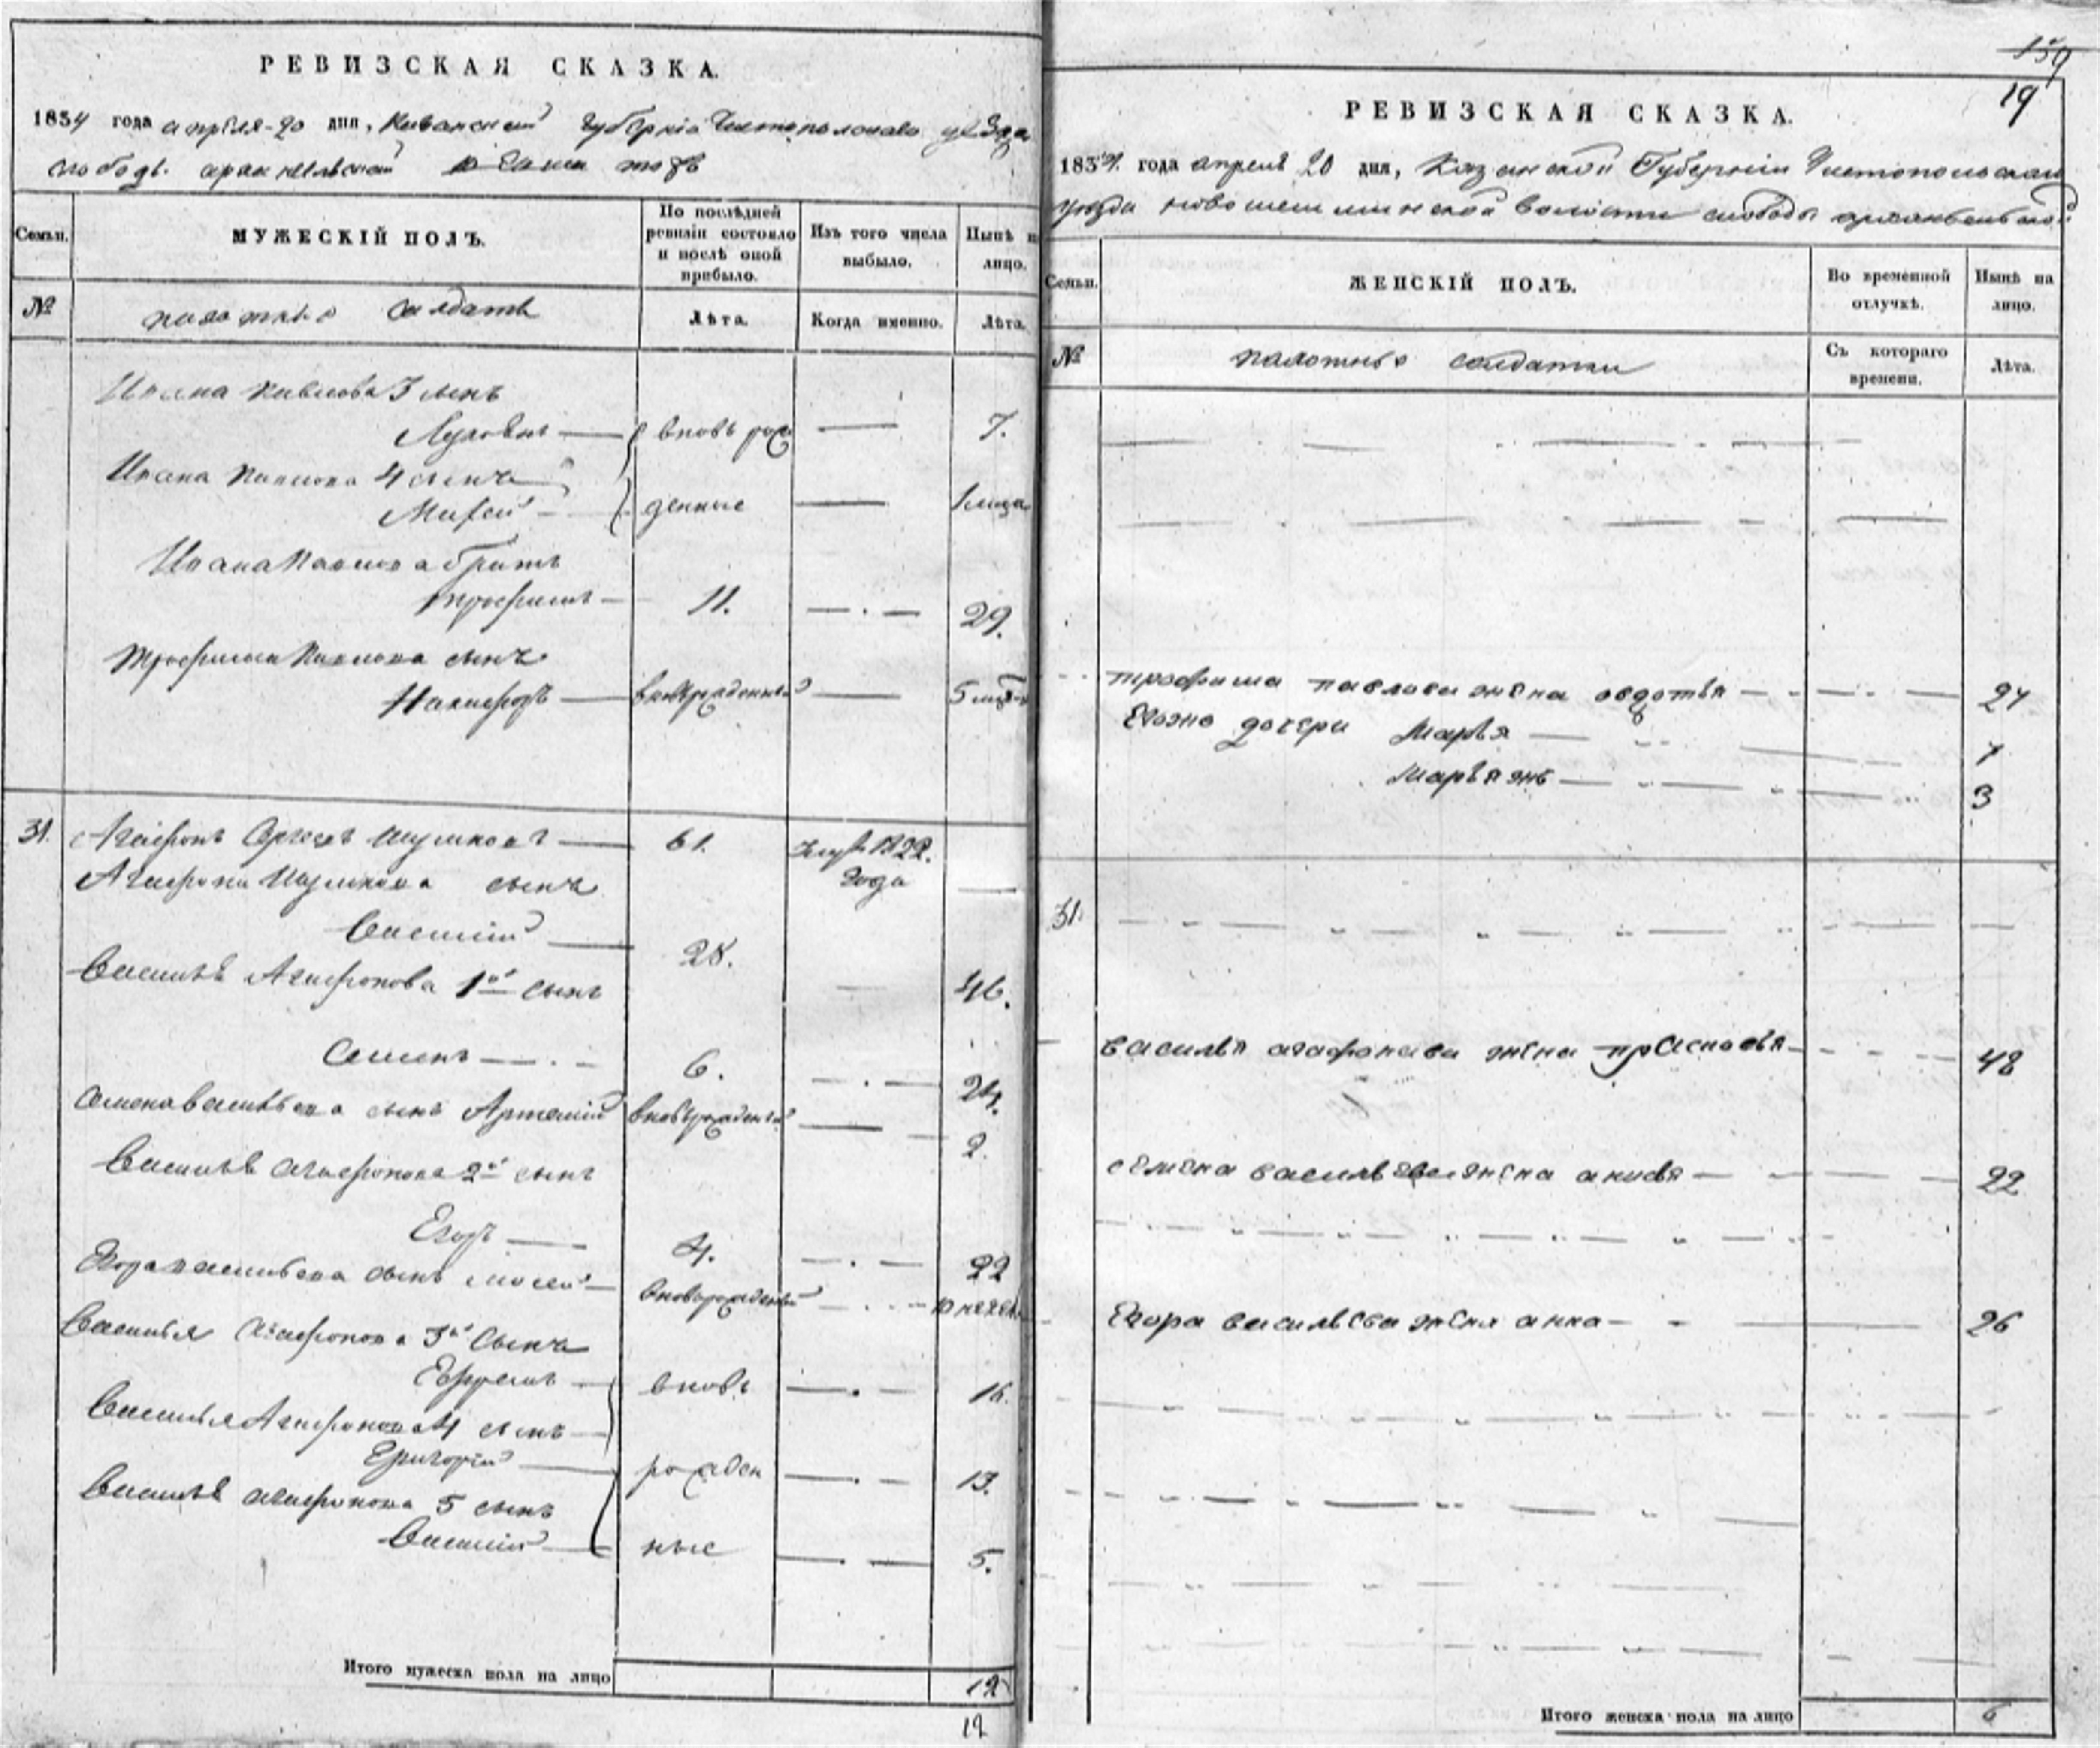 РЕВИЗСКАЯ СКАЗКА.
1834 года апреля 20 дня, Казанской Губернiи Чистопольскаго уезда
слободы архангельской тожъ
Семьи.
МУЖЕСКIЙ ПОЛЪ.
По послѣдней ревизiи состояло и послѣ оной прибыло.
Изъ того числа выбыло.
Нынѣ на лицо.
№
пахотныя солдатъ
Лѣта.
Когда именно.
Лѣта.
Ивана Павлова 3 сынъ
вновь рож 7.
Ивана Павлова 4 сынъ
денные
Ивана Павлова братъ
Трофимъ 11. 29.
Трофима Павлова сынъ
Никифоръ вновьрожденный
31. Агафонъ Сергеевъ Шумковъ 61. 1822.
Агафона Шумкова сынъ года
Василiй 28.
Василья Агафонова 1й сынъ 46.
Семенъ 6. 24.
Семена Васильева сынъ Артемiй вновьрожденый 2.
Василья Агафонова 2й сынъ
Егоръ 4. 22
Егора Васильева сынъ вновьрожденый 10 недель
Василья Агафонова 3й сынъ
Ефремъ вновь 16.
Василья Агафонова 4 сынъ
Григорiй рожден 13.
Василья Агафонова 5 сынъ
Василiй ные 5.
Итого мужеска пола на лицо 12
12
159
19
РЕВИЗСКАЯ СКАЗКА.
1834. года апреля 20 дня, Казанской Губернiи Чистопольскаго
уезда новошешминской волости слободы архангельской
Семьи.
ЖЕНСКIЙ ПОЛЪ.
Во временной отлучкѣ.
Нынѣ на лицо.
№
пахотныя солдатки
Съ котораго времени.
Лѣта.
трофима павлова жена овдотья 24
Егоже дочери Марья 7
Марья жъ 3
31.
василья агафонава жена прасковья 48
семена васильева жена анисья 22
Егора васильева жена анна 26
Итого женска пола на лицо 6